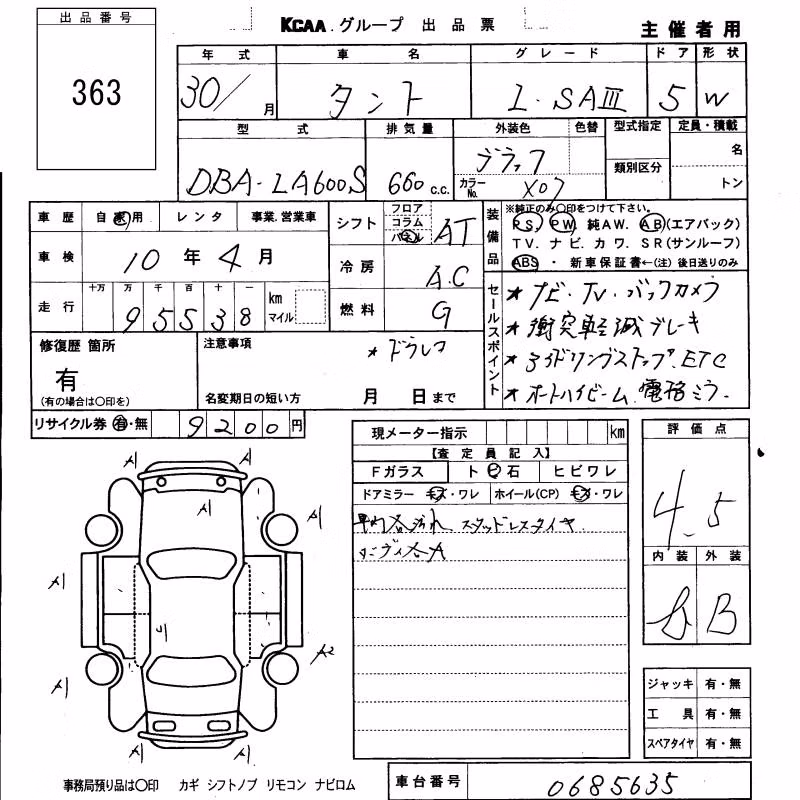 出品番号
363
KCAA.グループ 出品票
主催者用
年式 車名 グレード ドア 形状
30/ 月 タント L・SAⅢ 5 W
型式 排気量 外装色 色替 型式指定 定員・積載
DBA-LA600S 660 c.c. ブラック カラーNo. X07 類別区分 名 トン
車歴 自家用 レンタ 事業.営業車
車検 10年4月
走行 十万 万 千 百 十 一 km マイル
95538
シフト フロア コラム パネル AT
冷房 A.C
燃料 G
装備品
※純正のみ〇印をつけて下さい。
PS. PW. 純AW. AB(エアバック)
TV. ナビ. カワ. SR(サンルーフ)
ABS ・ 新車保証書←(注) 後日送りのみ
セールスポイント
★ナビ・TV・バックカメラ
★衝突軽減ブレーキ
★アイドリングストップ.ETC
★オートハイビーム.電格ミラー
修復歴 箇所
有
(有の場合は〇印を)
注意事項
★ドラレコ
名変期日の短い方 月 日まで
リサイクル券 有・無 9200円
現メーター指示 km
【査定員記入】
Fガラス トビ石 ヒビワレ
ドアミラー キズ・ワレ ホイール(CP) キズ・ワレ
スタッドレスタイヤ
評価点
4.5
内装 外装
B
A1 A1
A1 A1
A1 A1
A2
A1 A1
A1 A1
ジャッキ 有・無
工具 有・無
スペアタイヤ 有・無
事務局預り品は〇印 カギ シフトノブ リモコン ナビロム
車台番号 0685635